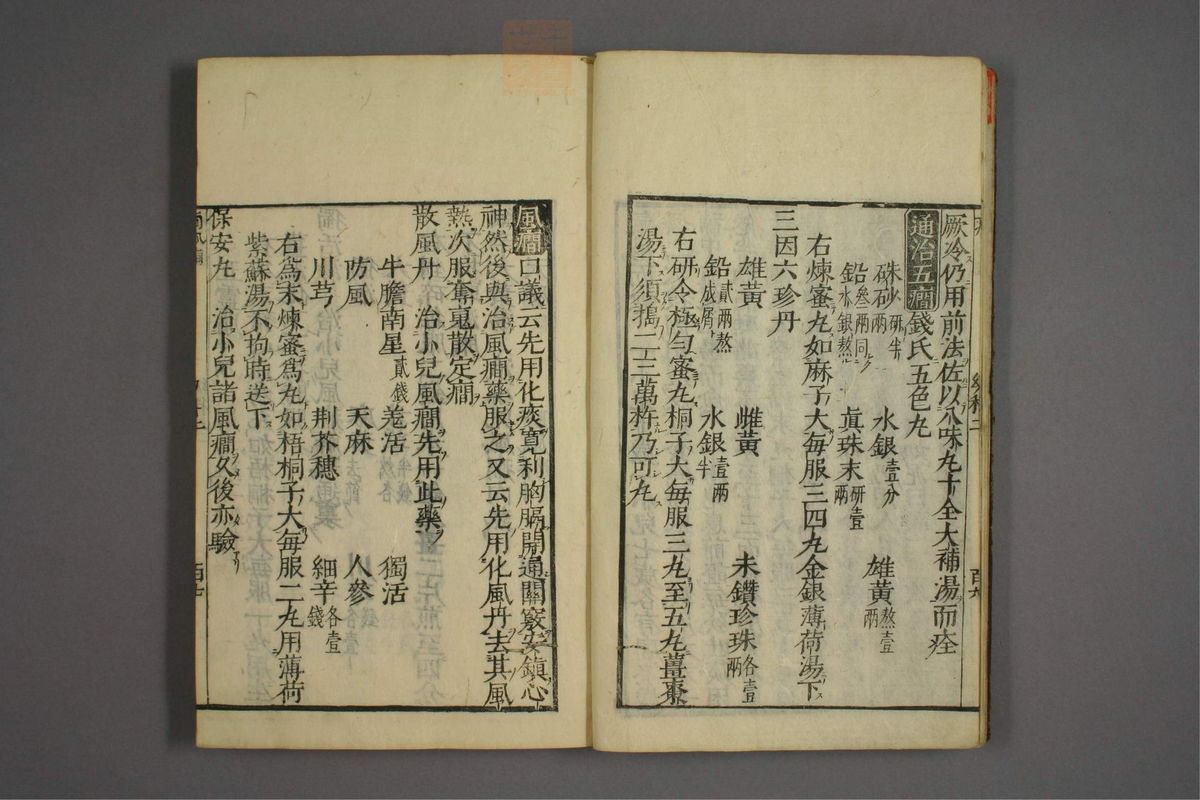 厥冷仍用前法佐以八味丸十全大補湯而痊
通治五癇錢氏五色丸
硃砂研半兩 水銀壹分 雄黃熬壹兩
鉛叄兩同水銀熬 眞珠末研壹兩
右煉蜜丸如麻子大每服三四丸金銀薄荷湯下
三因六珍丹
雄黃 雌黃 未鑽珍珠各壹兩
鉛貳兩熬成屑 水銀壹兩半
右研令極勻蜜丸桐子大每服三丸至五丸薑棗
湯下須搗二三萬杵乃可丸
風癇口議云先用化痰寬利胸膈開通關竅安鎮心
神然後與治風癇藥服之又云先用化風丹去其風
熱次服奪魂散定癇
散風丹 治小兒風癇先用此藥
牛膽南星貳錢 羗活 獨活
防風 天麻 人參
川芎 荆芥穗 細辛各壹錢
右爲末煉蜜爲丸如梧桐子大每服二丸用薄荷
紫蘇湯不拘時送下
保安丸 治小兒諸風癇久後亦驗